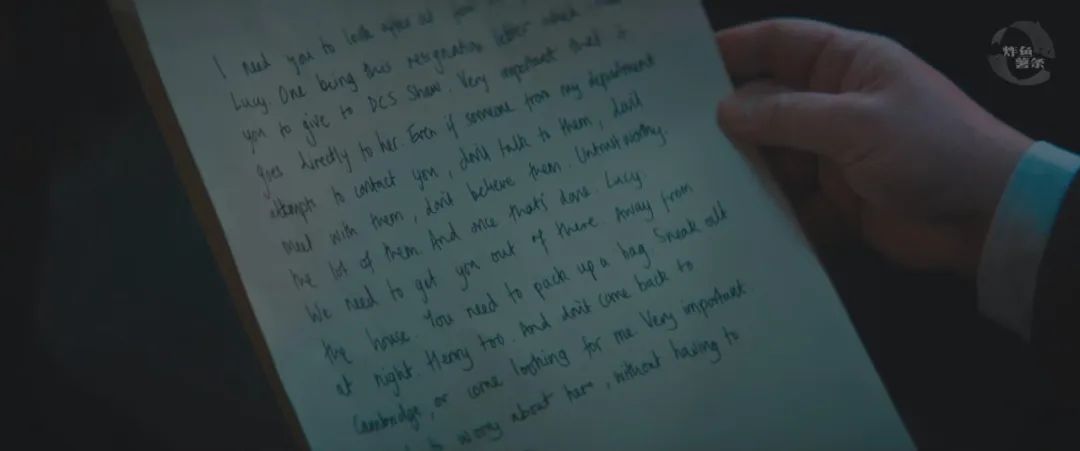 I need you to look after at your
Lucy. One being this resignation letter which
you to give to DCS Shaw. Very important that it
goes directly to her. Even if someone from my department
attempts to contact you, don't talk to them, don't
meet with them, don't believe them. Untrustworthy.
the lot of them. And once that's done. Lucy
We need to get you out of there. Away from
the house. You need to pack up a bag Sneak out
at night. Henry too. And don't come back to
Cambridge, or come looking for me. Very important
to worry about here, without having to
炸鱼
薯条